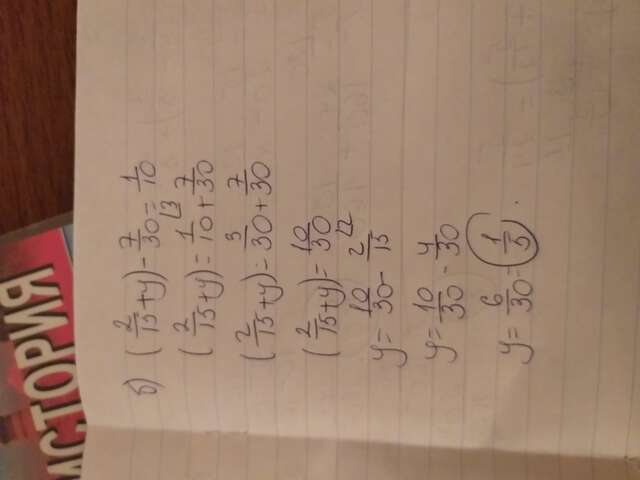 ИСТОРИЯ
б) (2/15+y)-7/30=1/10
(2/15+y)=1/10 ⌊3+7/30
(2/15+y)=3/30+7/30
(2/15+y)=10/30
y=10/30-2/15 ⌊2
y=10/30-4/30
y=6/30=1/5.